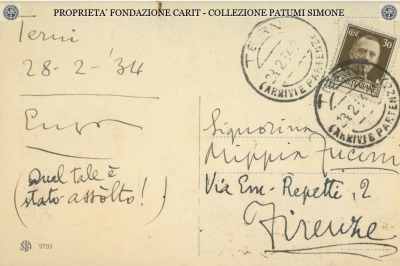 PROPRIETA' FONDAZIONE CARIT - COLLEZIONE PATUMI SIMONE
Terni
28-2-'34
(Quel tale è
stato assòlto!)
9793
30
POSTE ITALIANE
TERNI
28.2.34
(ARRIVI E PARTENZE)
TERNI
28.2.34
(ARRIVI E PARTENZE)
Signorina
Mippia Fucini
Via Em-Repetti, 2
Firenze